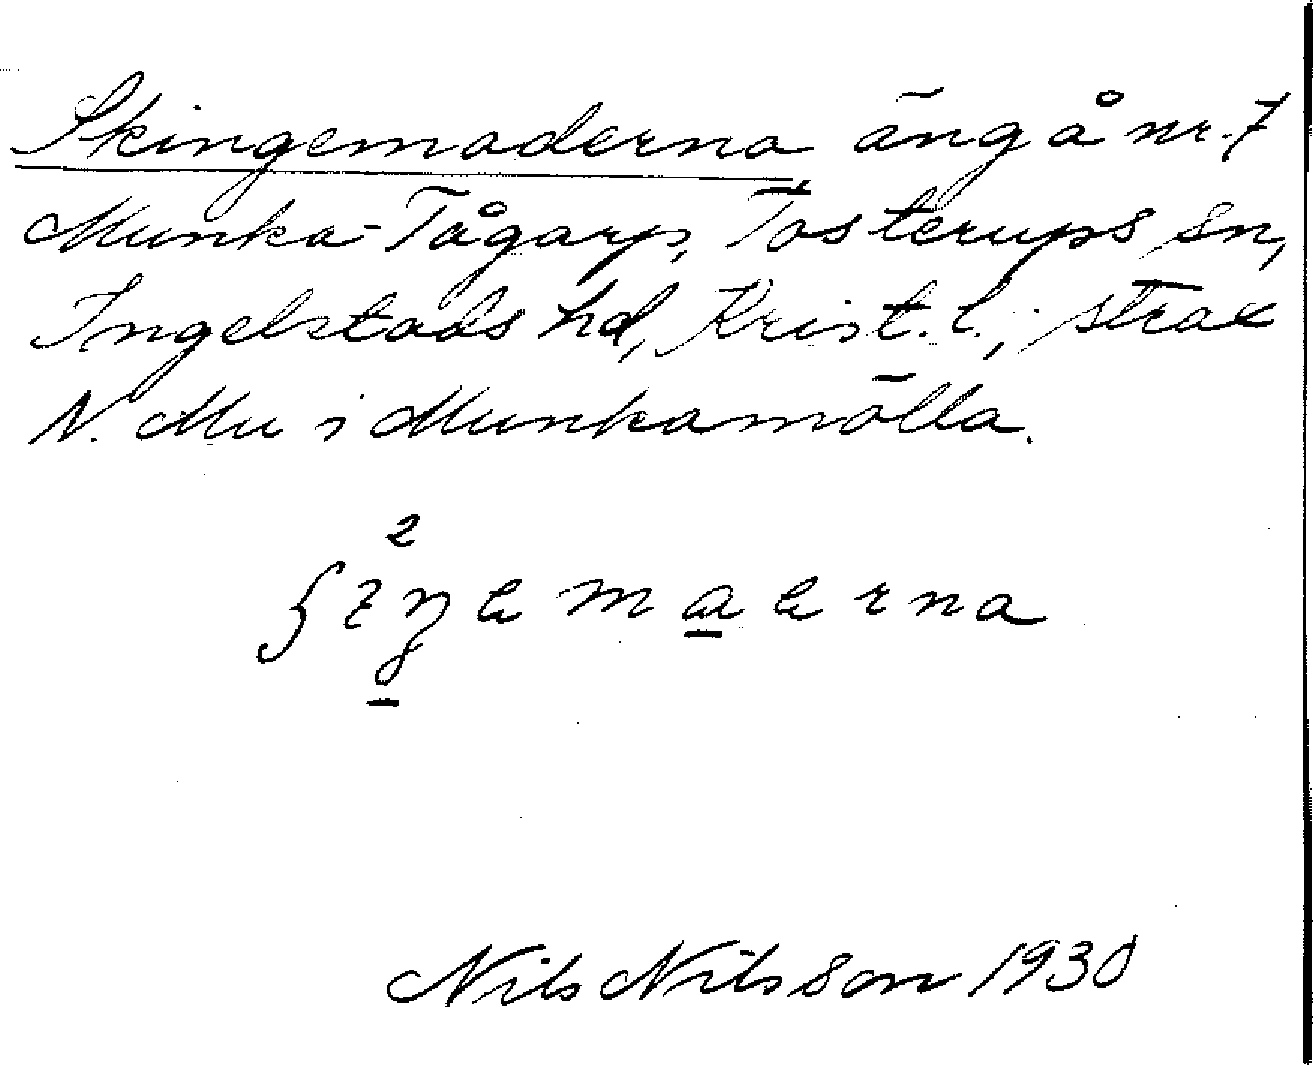 Skingemaderna äng å nr. 7
Munka-Tågarp, Tosterups sn,
Ingelstads hd, Krist. l., strax
N. Mu i Munkamölla.
2
ʃɪŋemaerna
Nils Nilsson 1930